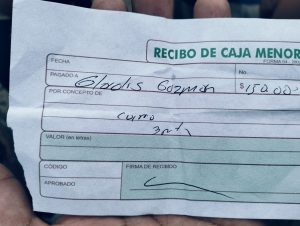 RECIBO DE CAJA MENOR
FORMA 04
FECHA No.
PAGADO A Gladis Gozman $150.00
POR CONCEPTO DE
VALOR (en letras)
CÓDIGO FIRMA DE RECIBIDO
APROBADO